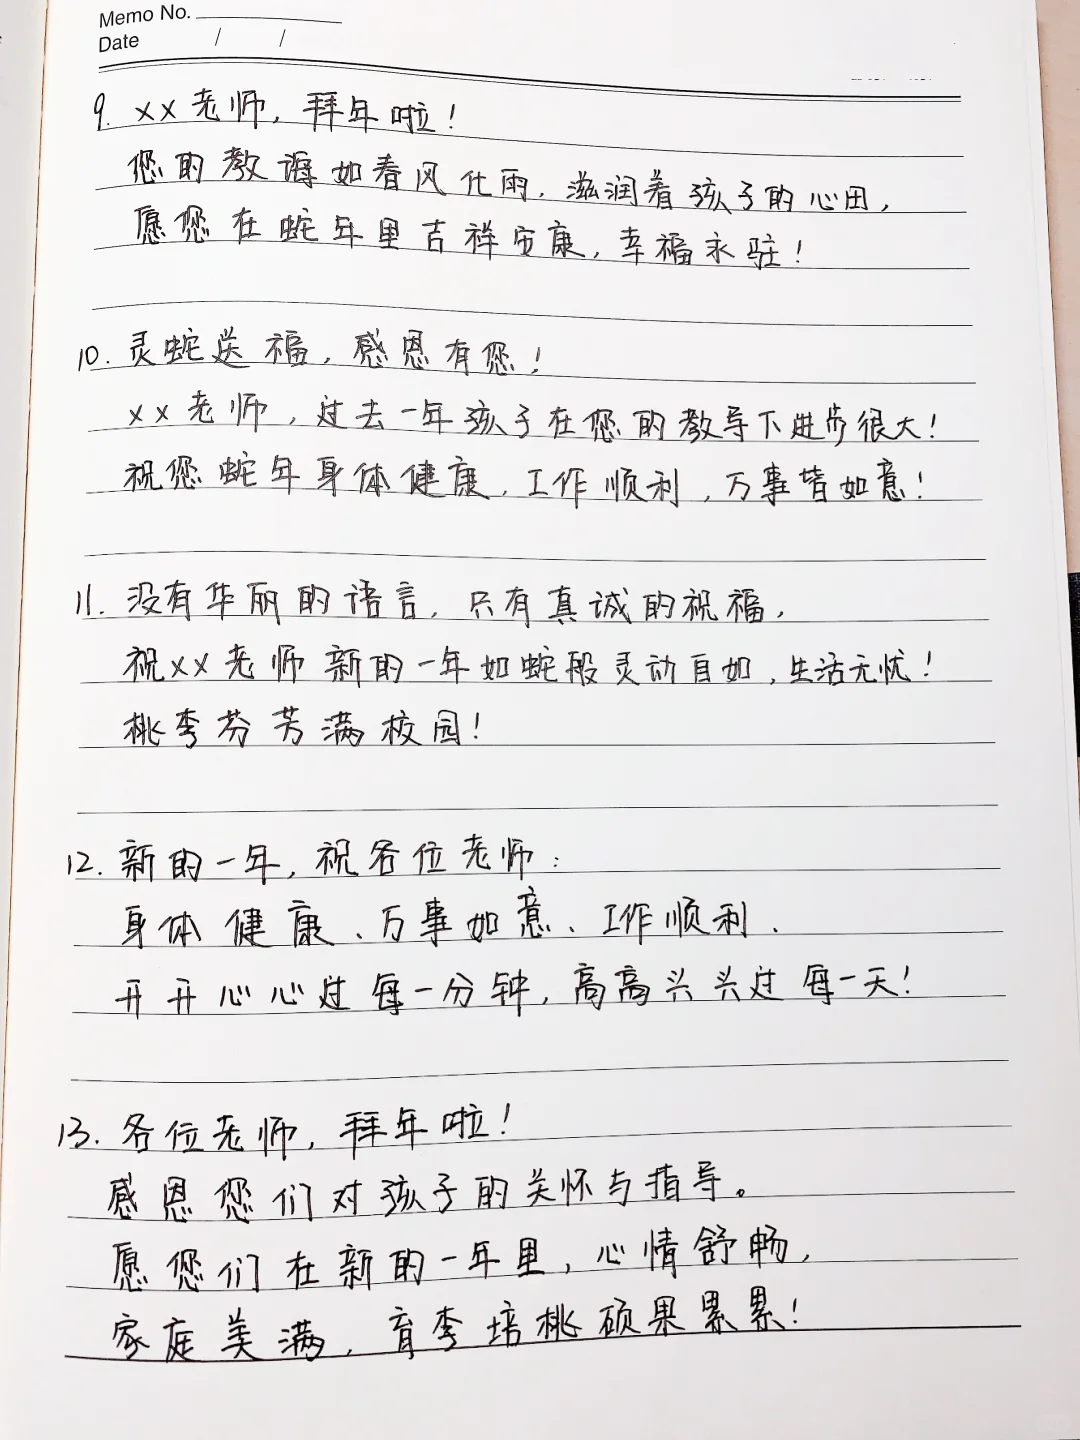 Memo No.
Date / /
9. ××老师，拜年啦！
您的教诲如春风化雨，滋润着孩子的心田，
愿您在蛇年里吉祥安康，幸福永驻！
10. 灵蛇送福，感恩有您！
××老师，过去一年孩子在您的教导下进步很大！
祝您蛇年身体健康，工作顺利，万事皆如意！
11. 没有华丽的语言，只有真诚的祝福，
祝××老师新的一年如蛇般灵动自如，生活无忧！
桃李芬芳满校园！
12. 新的一年，祝各位老师：
身体健康、万事如意、工作顺利，
开开心心过每一分钟，高高兴兴过每一天！
13. 各位老师，拜年啦！
感恩您们对孩子的关怀与指导。
愿您们在新的一年里，心情舒畅，
家庭美满，育李培桃硕果累累！